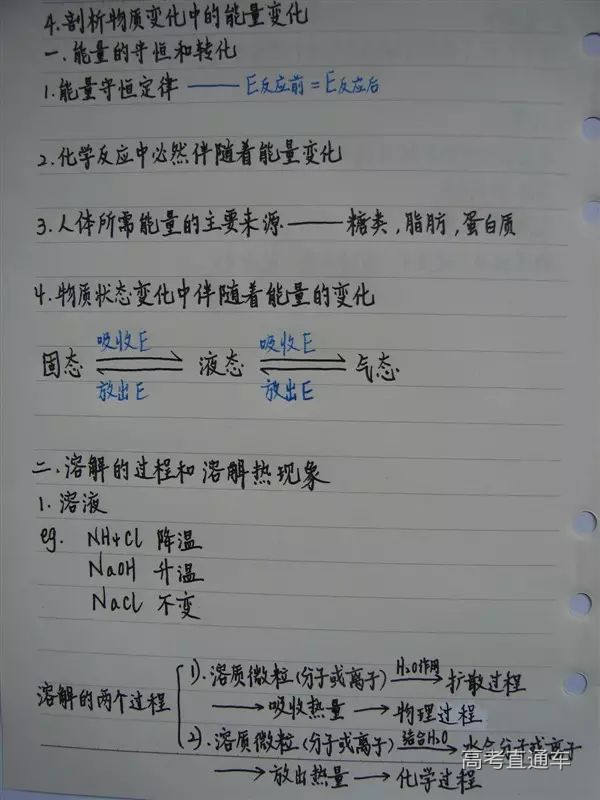 4.剖析物质变化中的能量变化
一.能量的守恒和转化
1.能量守恒定律 —— E反应前=E反应后
2.化学反应中必然伴随着能量变化
3.人体所需能量的主要来源——糖类,脂肪,蛋白质
4.物质状态变化中伴随着能量的变化
吸收E 吸收E
固态 ⇌ 液态 ⇌ 气态
放出E 放出E
二.溶解的过程和溶解热现象
1.溶液
eg. NH4Cl 降温
NaOH 升温
NaCl 不变
溶解的两个过程
1).溶质微粒(分子或离子) H2O作用→ 扩散过程
→吸收热量→物理过程
2).溶质微粒(分子或离子) 结合H2O→ 水合分子或离子
→放出热量→化学过程
高考直通车